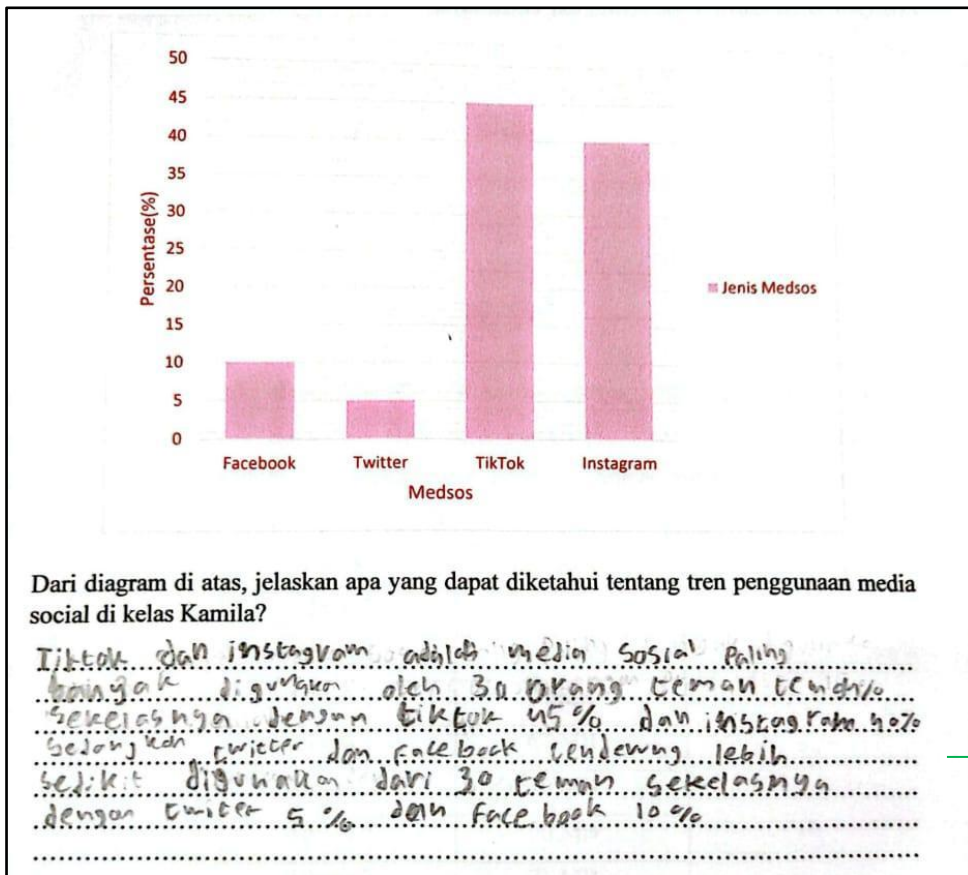 50
45
40
35
30
25
20
15
10
5
0
Persentase(%)
Facebook Twitter TikTok Instagram
Medsos
Jenis Medsos
Dari diagram di atas, jelaskan apa yang dapat diketahui tentang tren penggunaan media
social di kelas Kamila?
Tiktok dan instagram adalah media sosial Paling
banyak digunakan oleh 30 orang teman
sekelasnya dengan tiktok 45% dan instagram 40%
Sedangkan twitter dan facebook cenderung lebih
sedikit digunakan dari 30 teman sekelasnya
dengan twiter 5% dan Facebook 10%